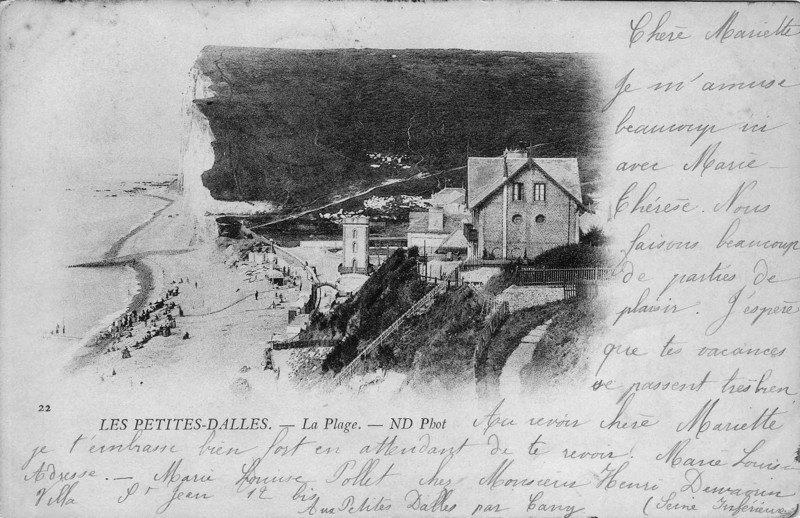 Chère Mariette
Je m'amuse
beaucoup ici
avec Marie-
Thérèse. Nous
faisons beaucoup
de parties de
plaisir. J'espère
que tes vacances
se passent très bien
22
LES PETITES-DALLES. — La Plage. — ND Phot
Au revoir chère Mariette
je t'embrasse bien fort en attendant de te revoir. Marie Louise
Adresse. — Marie Louise Pollet chez Monsieur Henri
Villa St Jean 12 bis
Aux Petites Dalles par Cany (Seine Inférieure)